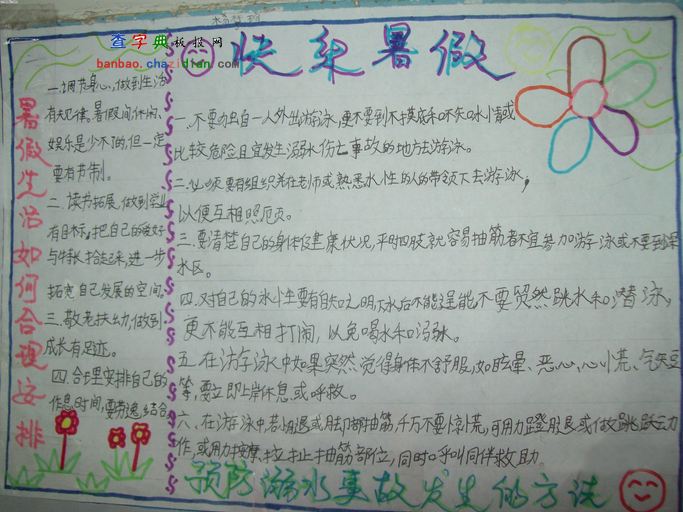 查字典板报网
banbao.chazidian.com
快乐暑假
暑假生活如何合理安排
一.调节身心,做到生活
有规律。暑假间,休闲、
娱乐是少不了的,但一定
要有节制。
二.读书拓展,做到学业
有目标。把自己的爱好
与特长拾起来,进一步
拓宽自己发展的空间。
三.敬老扶幼,做到
成长有足迹。
四.合理安排自己的
作息时间,要劳逸结合
一.不要独自一人外出游泳,更不要到不摸底和不知水情或
比较危险且宜发生溺水伤亡事故的地方去游泳。
二.必须要有组织并在老师或熟悉水性的人的带领下去游泳,
以便互相照应。
三.要清楚自己的身体健康状况,平时四肢就容易抽筋者不宜参加游泳或不要到深
水区。
四.对自己的水性要有自知之明,下水后不能逞能不要贸然跳水和潜泳,
更不能互相打闹,以免喝水和溺水。
五.在游泳中如果突然觉得身体不舒服,如眩晕、恶心、心慌、气短
等,要立即上岸休息或呼救。
六.在游泳中,若小腿或脚部抽筋,千万不要惊慌,可用力蹬腿或做跳跃动
作,或用力按摩、拉扯抽筋部位,同时呼叫同伴救助。
预防溺水事故发生的方法